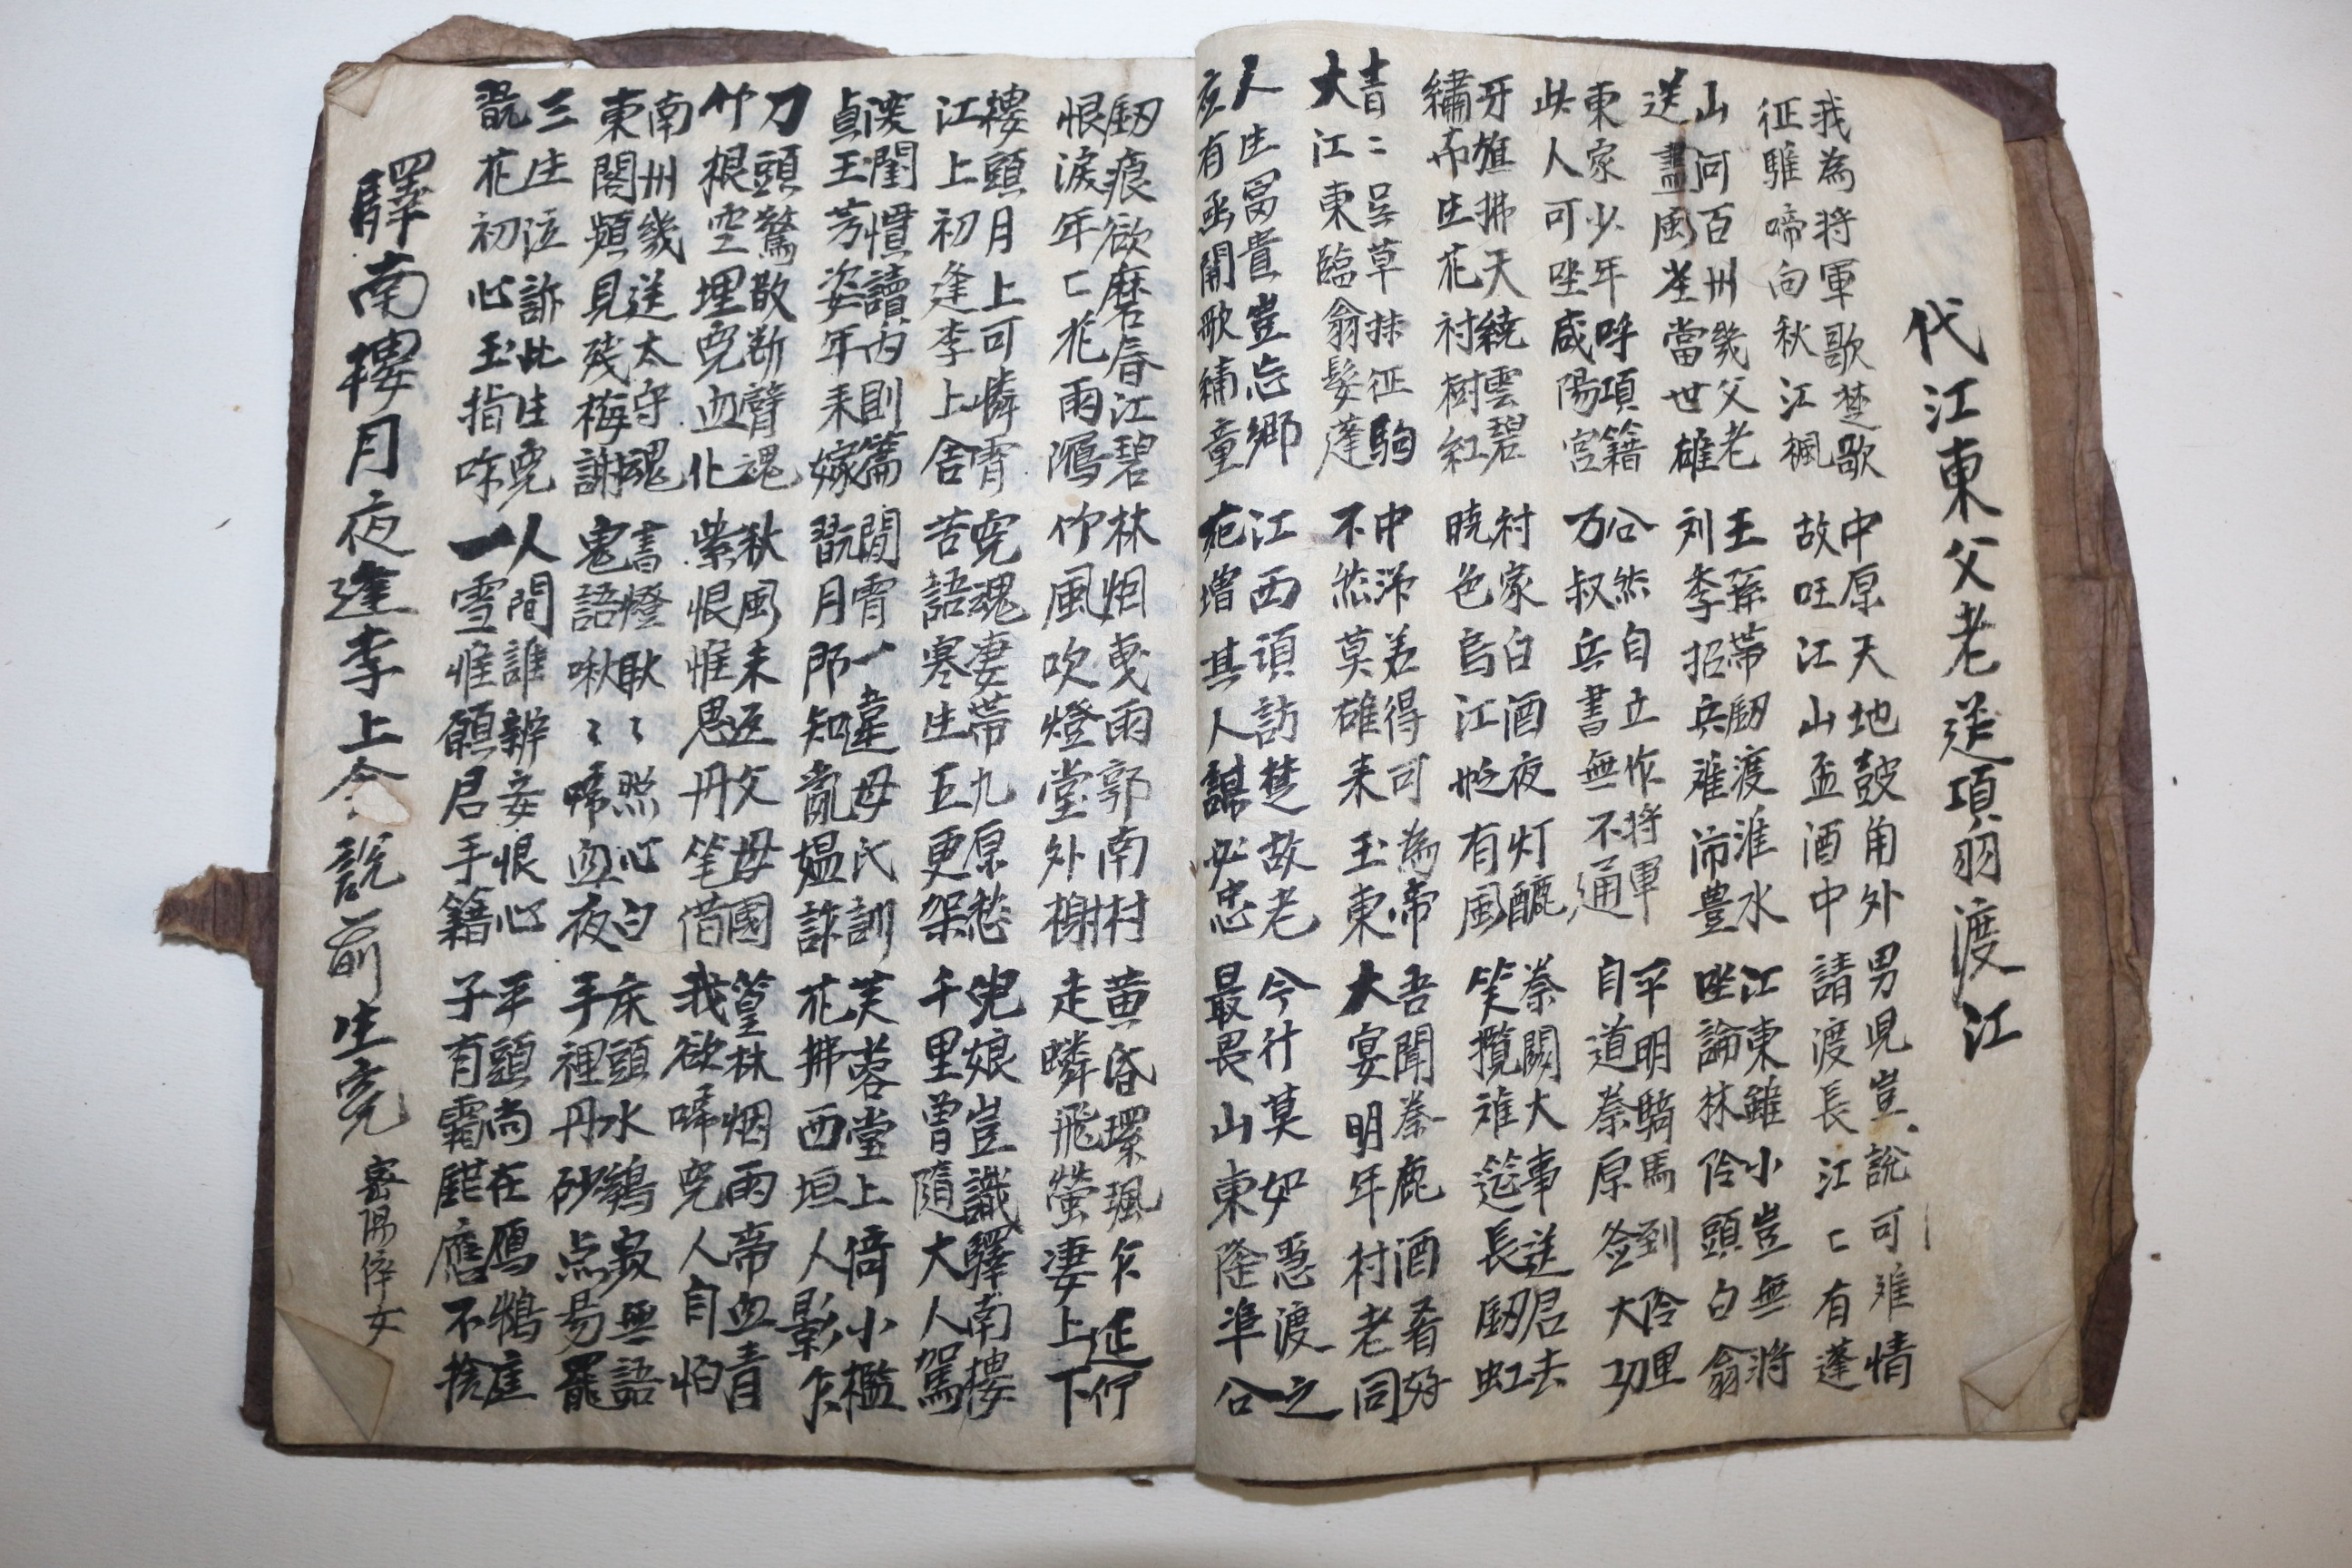 代江東父老送項羽渡江
我為將軍歌楚歌
征騅啼向秋江楓
中原天地鼓角外
故旺江山盃酒中
男児豈說可难情
請渡長江匚有蓬
山河百州幾父老
送盡風當世雄
王孫帶劒渡淮水
刘季招兵难沛豊
江東雖小豈無將
坐論林伶頭白翁
東家少年呼項籍
此人可坐咸陽宮
公然自立作將軍
万叔兵書無不通
平明騎馬到伶里
自道秦原签大功
牙旌拂天繞雲碧
繡帘庄花村樹紅
村家白酒夜灯醺
晓色烏江帆有風
秦關大事送君去
笑攬难筵長劒虹
青〻吳草抹征駒
大江東臨翁髮蓬
中沛若得可為帝
不然莫雄来玉東
吾聞秦鹿酒肴好
大宴明年村老同
人生冨貴豈忘鄉
夜有函關歌繡童
江西頭訪楚故老
花增其人謀必忠
今行莫如忽渡之
最畏山東隆準公
劒痕欲磨唇江碧
恨淚年匚花雨濕
林烟曵雨郭南村
竹風吹燈堂外榭
黄昏環珮乍延佇
走燐飛螢凄上下
樓頭月上可憐宵
江上初逢李上舍
寃魂凄帶九原愁
苦語寒生五更架
兒娘豈識驛南樓
千里曽隨大人駕
深閨慣讀內則篇
貞玉芳姿年未嫁
閒宵一違母氏訓
翫月那知媼詐
芙蓉堂上倚小檻
花拂西垣人影乍
刀頭驚散断臂魂
竹根空埋寃血化
秋風未返父母國
紫恨惟思丹笔借
篁林烟雨帝血青
我欲啼寃人自怕
南州幾送太守魂
東閣頻見残梅謝
書燈耿〻照心白
鬼語啾〻啼血夜
床頭水鷄寂無語
手裡丹砂点易罷
三生泣訴此生寃
翫花初心玉指咋
人間誰辨妾恨心
一雪惟願君手籍
平頭尚在鴈鵝庭
子有霜應不捨
驛南樓月夜逢李上舍說前生寃 密陽倅女